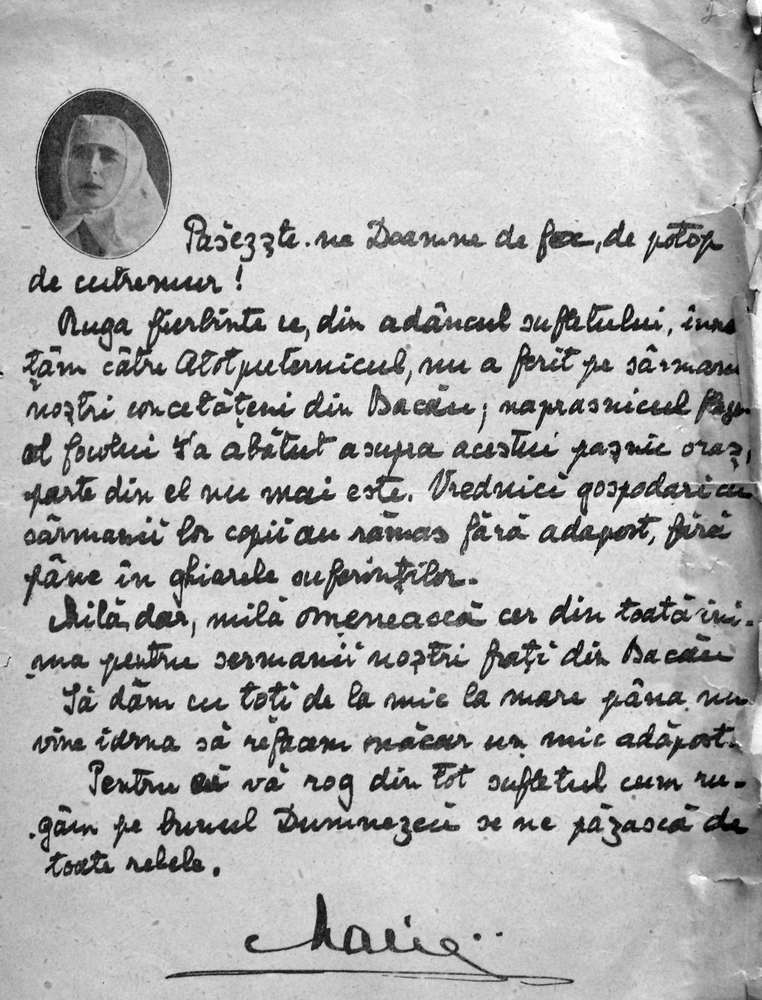 Păzește-ne Doamne de foc, de potop
de cutremur!
Ruga fierbinte ce, din adâncul sufletului, înnă
țăm către Atotputernicul, nu a ferit pe sărmanii
noștri concetățeni din Bacău; naprasnicul flage
al focului s'a abătut asupra acestui pașnic oraș,
parte din el nu mai este. Vrednici gospodari cu
sărmanii lor copii au rămas fără adăpost, fără
pâne în ghiarele suferinților.
Milă, dar, milă omenească cer din toată ini-
ma pentru sermanii noștri frați din Bacău
Să dăm cu toți de la mic la mare până nu
vine iarna să refacem măcar un mic adăpost.
Pentru ei vă rog din tot sufletul cum ru-
găm pe bunul Dumnezeu se ne păzască de
toate relele.
Maria